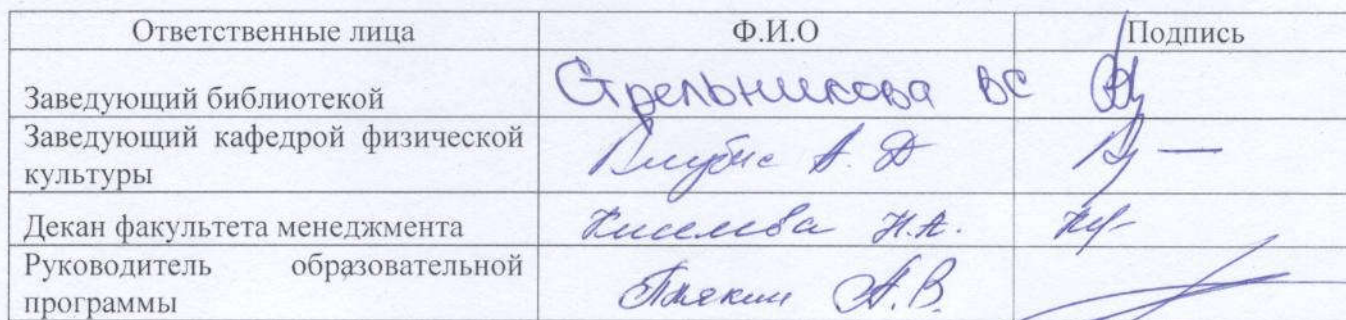 Ответственные лица Ф.И.О Подпись
Заведующий библиотекой Стрельникова ВС
Заведующий кафедрой физической
культуры А. Д
Декан факультета менеджмента Киселева Н.А.
Руководитель образовательной
программы А.В.